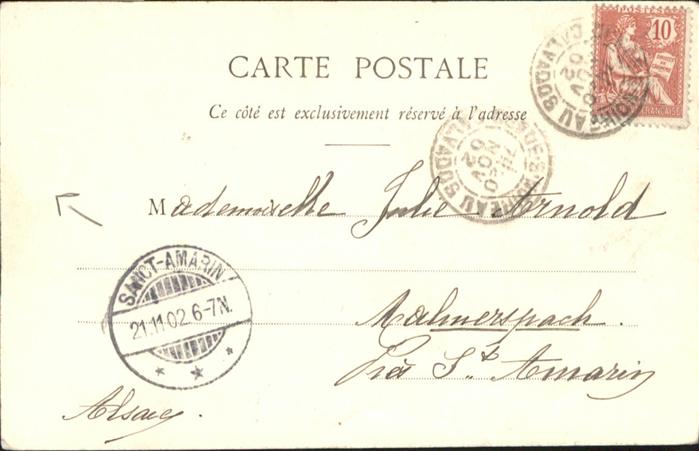 10
CARTE POSTALE
Ce côté est exclusivement réservé à l'adresse
CALVADOS
CALVADOS
20
NOV
02
Mademoiselle Julie Arnold
SANCT-AMARIN
21.11.02 6-7N.
Malmerspach.
Près St Amarin
Alsace